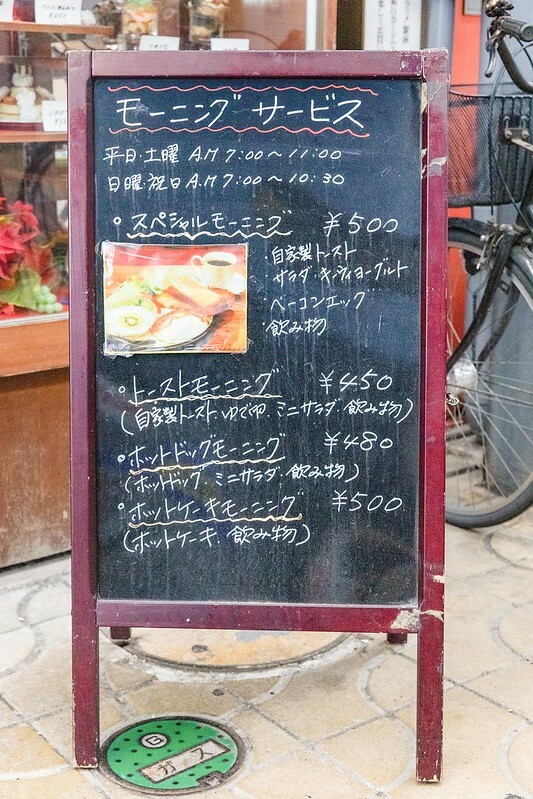 モーニングサービス
平日・土曜 A.M 7:00〜11:00
日曜・祝日 A.M 7:00〜10:30
。スペシャルモーニング ¥500
・自家製トースト
・サラダ・キウィヨーグルト
・ベーコンエッグ
・飲み物
。トーストモーニング ¥450
(自家製トースト ゆで卵 ミニサラダ 飲み物)
。ホットドッグモーニング ¥480
(ホットドッグ ミニサラダ 飲み物)
。ホットケーキモーニング ¥500
(ホットケーキ 飲み物)
B
ガス